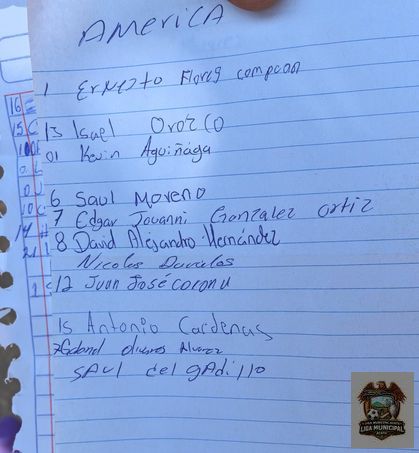 AMERICA
1 Ernesto Flores compean
13 Isael Orozco
01 Kevin Aguiñaga
6 Saul Moreno
7 Edgar Jovanni Gonzalez ortiz
8 David Alejandro Hernández
Nicolas Davalos
12 Juan José coronu
15 Antonio Cardenas
olivares Alvarez
SAul del gAdillo
LIGA MUNICIPAL